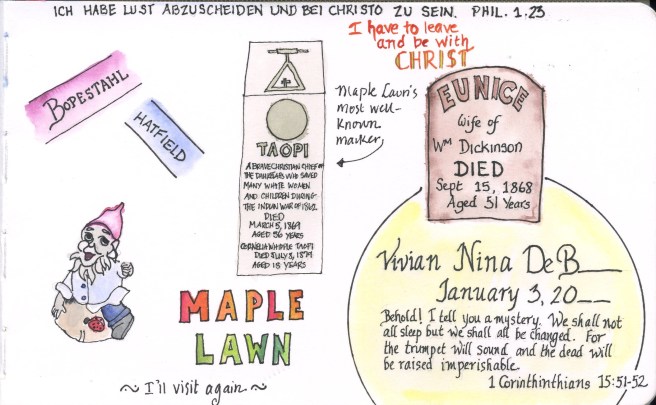 ICH HABE LUST ABZUSCHEIDEN UND BEI CHRISTO ZU SEIN. PHIL. 1,23
I have to leave
and be with
CHRIST
BOPESTAHL
HATFIELD
TAOPI
A BRAVE CHRISTIAN CHIEF OF
THE WHO SAVED
MANY WHITE WOMEN
AND CHILDREN DURING
THE INDIAN WAR OF 1862
DIED
MARCH 5, 1869
AGED 56 YEARS
CORNELIA WHIPPLE TAOPI
DIED JULY 3, 1879
AGED 15 YEARS
Maple Lawn's
most well-
known
marker
EUNICE
Wife of
Wm Dickinson
DIED
Sept 15, 1868
Aged 51 Years
Vivian Nina DeB___
January 3, 20__
Behold! I tell you a mystery. We shall not
all sleep but we shall all be changed. For
the trumpet will sound and the dead will
be raised imperishable
1 Corinthinthians 15:51-52
MAPLE
LAWN
~ I'll visit again ~